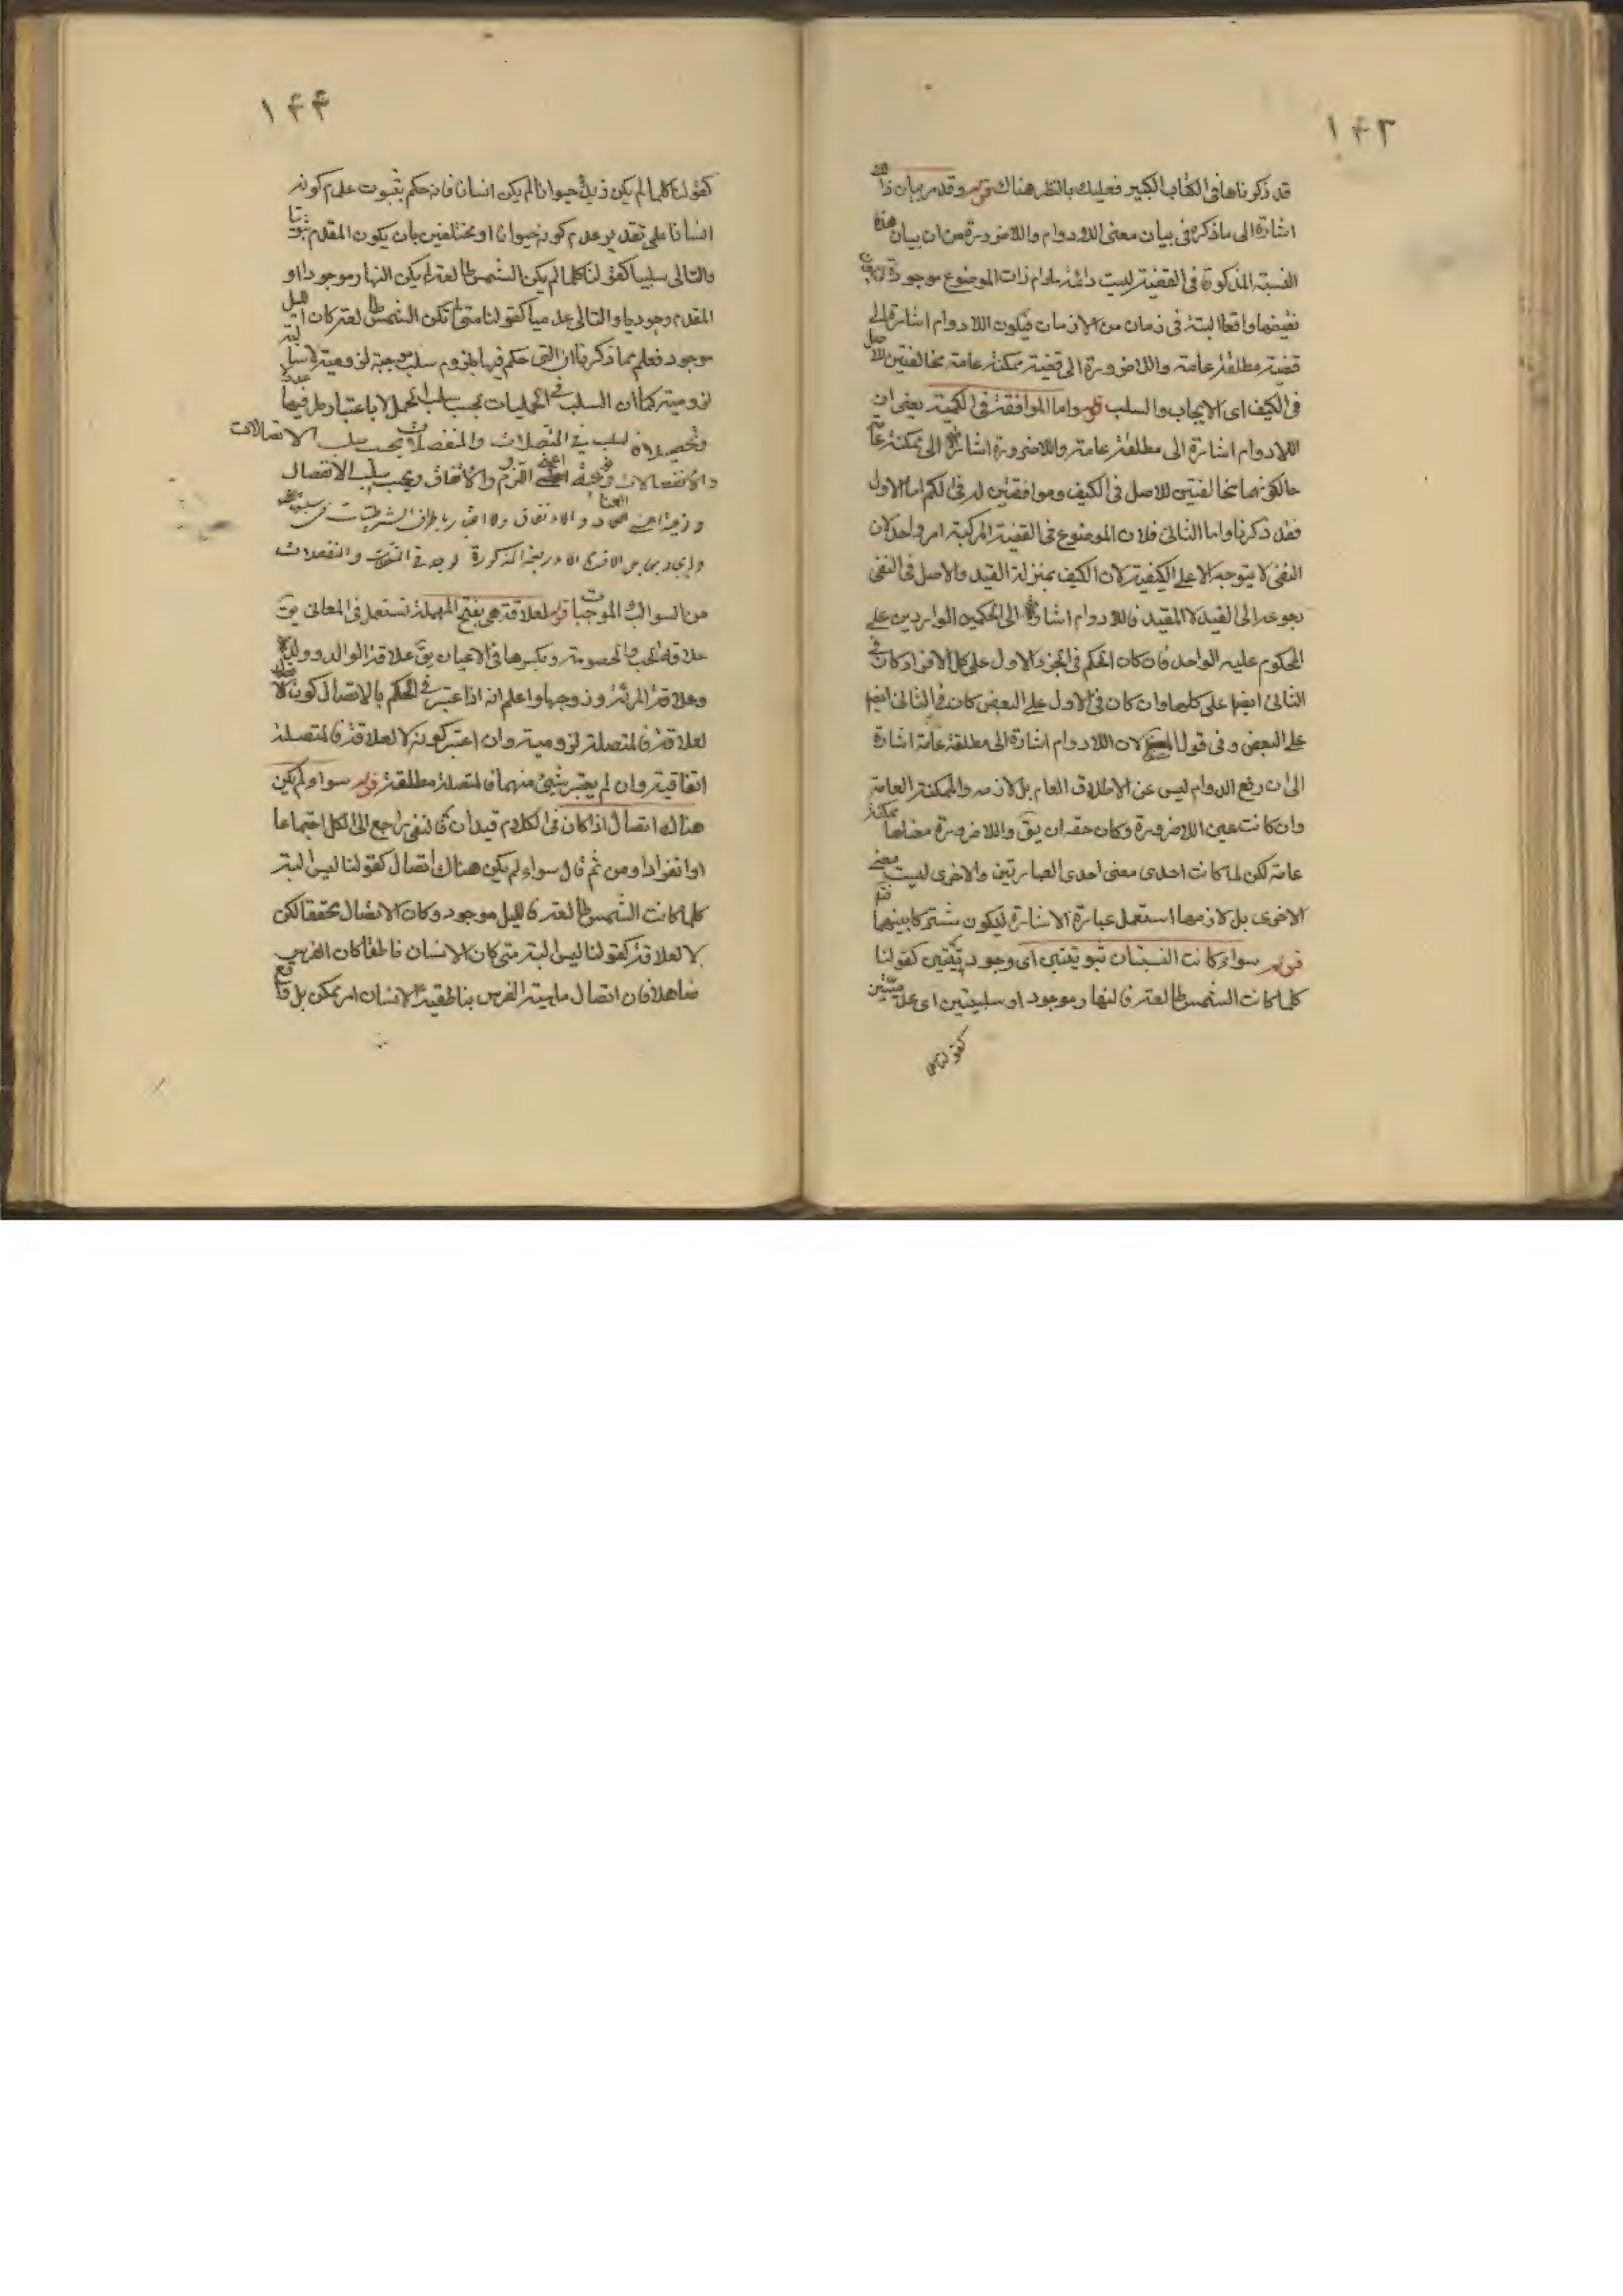 ١٤٣
قد ذكرناها في الكتاب الكبير فعليك بالنظر هناك قوله وقد مر بيان ذلك
اشارة الى ما ذكره في بيان معنى اللادوام واللاضرورة من ان بيان هذه
النسبة المذكورة في القضية ليست دائمة مادام ذات الموضوع موجودة فيكون
نقيضها واقعا البتة في زمان من الازمان فيكون اللادوام اشارة الى
قضية مطلقة عامة واللاضرورة الى قضية ممكنة عامة مخالفتين للاصل
في الكيف اى الايجاب والسلب قوله واما الموافقة في الكمية يعنى ان
اللادوام اشارة الى مطلقة عامة واللاضرورة اشارة الى ممكنة عامة
حالكونهما مخالفتين للاصل في الكيف وموافقتين له في الكم اما الاول
فقد ذكرنا واما الثانى فلان الموضوع في القضية المركبة امر واحد لان
النفى لا يتوجه الا على الكيفية لان الكيف بمنزلة القيد والاصل في النفى
رجوعه الى القيد لا المقيد فاللادوام اشارة الى الحكمين الواردين على
المحكوم عليه الواحد فان كان الحكم في الجزء الاول على كل الافراد كان في
الثانى ايضا على كلها وان كان في الاول على البعض كان في الثانى ايضا
على البعض وفى قول لان اللادوام اشارة الى مطلقة عامة اشارة
الى ان رفع الدوام ليس عين الاطلاق العام بل لازمه والممكنة العامة
وان كانت عين اللاضرورة وكان حقه ان يق واللاضرورة معناها ممكنة
عامة لكن لما كانت احدى معنى احدى العبارتين والاخرى ليست معنى
الاخرى بل لازمها استعمل عبارة الاشارة ليكون مشتركا بينهما
قوله سواء كانت النسبتان ثبوتيتين اى وجوديتين كقولنا
كلما كانت الشمس طالعة فالنهار موجود او سلبيتين اى عدميتين
كقولنا
١٤٤
كقولنا كلما لم يكن زيد حيوانا لم يكن انسانا فانه حكم بثبوت عدم كونه
انسانا على تقدير عدم كونه حيوانا او مختلفين بان يكون المقدم ثبوتيا
والتالى سلبيا كقولنا كلما لم يكن الشمس طالعة لم يكن النهار موجودا او
المقدم وجوديا والتالى عدميا كقولنا متى لم تكن الشمس طالعة كان الليل
موجود فعلم مما ذكرنا ان التى حكم فيها بلزوم سلب موجبة لزومية لا سالبة
لزومية كما ان السلب في الحمليات بحسب سلب الحمل لا باعتبار طرفيها
وتحصيلا السلب في المتصلات والمنفصلات بحسب سلب الاتصالات
والانفصالات اعنى اللزوم والاتفاق وبحسب سلب الانفصال
اعنى العناد والاتفاق ولا اعتبار باطراف الشرطيات في
الاربعة المذكورة توجد في المتصلات والمنفصلات
من السوالب والموجبات قوله لعلاقة هى بفتح المهملة تستعمل في المعانى يق
علاقة الحب والخصومة وبكسرها في الاعيان يق علاقة الوالد وولده
وعلاقة المرئة وزوجها واعلم انه اذا اعتبر في الحكم بالاتصال كونه
لعلاقة فالمتصلة لزومية وان اعتبر كونه لا لعلاقة فالمتصلة
اتفاقية وان لم يعتبر شيئ منهما فالمتصلة مطلقة قوله سواء لم يكن
هناك اتصال اذا كان في الكلام قيدان فالنفى راجع الى الكل اجتماعا
او انفرادا ومن ثم قال سواء لم يكن هناك اتصال كقولنا ليس البتة
كلما كانت الشمس طالعة فالليل موجود وكان الاتصال محققا لكن
لا لعلاقة كقولنا ليس البتة متى كان الانسان ناطقا كان الفرس
صاهلا فان اتصال ماهية الفرس بناطقية الانسان امر ممكن بل واقع